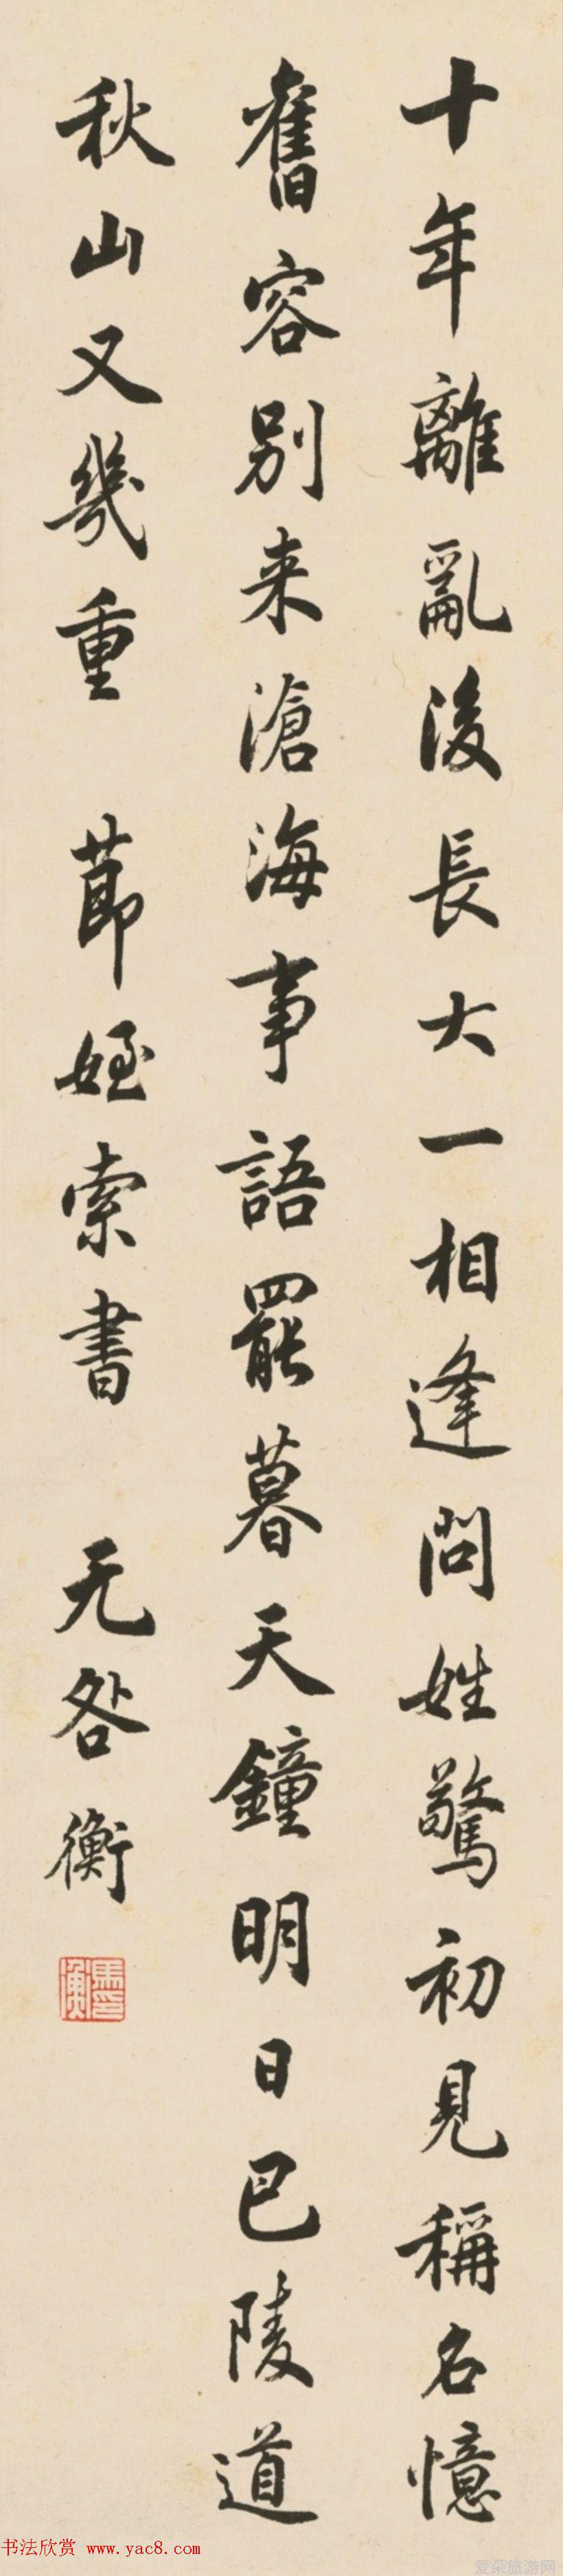 十年離亂後長大一相逢問姓驚初見稱名憶
舊容別来滄海事語罷暮天鐘明日巴陵道
秋山又幾重 節姪索書 无咎衡
馬衡印
书法欣赏 www.yac8.com
爱朵旅游网